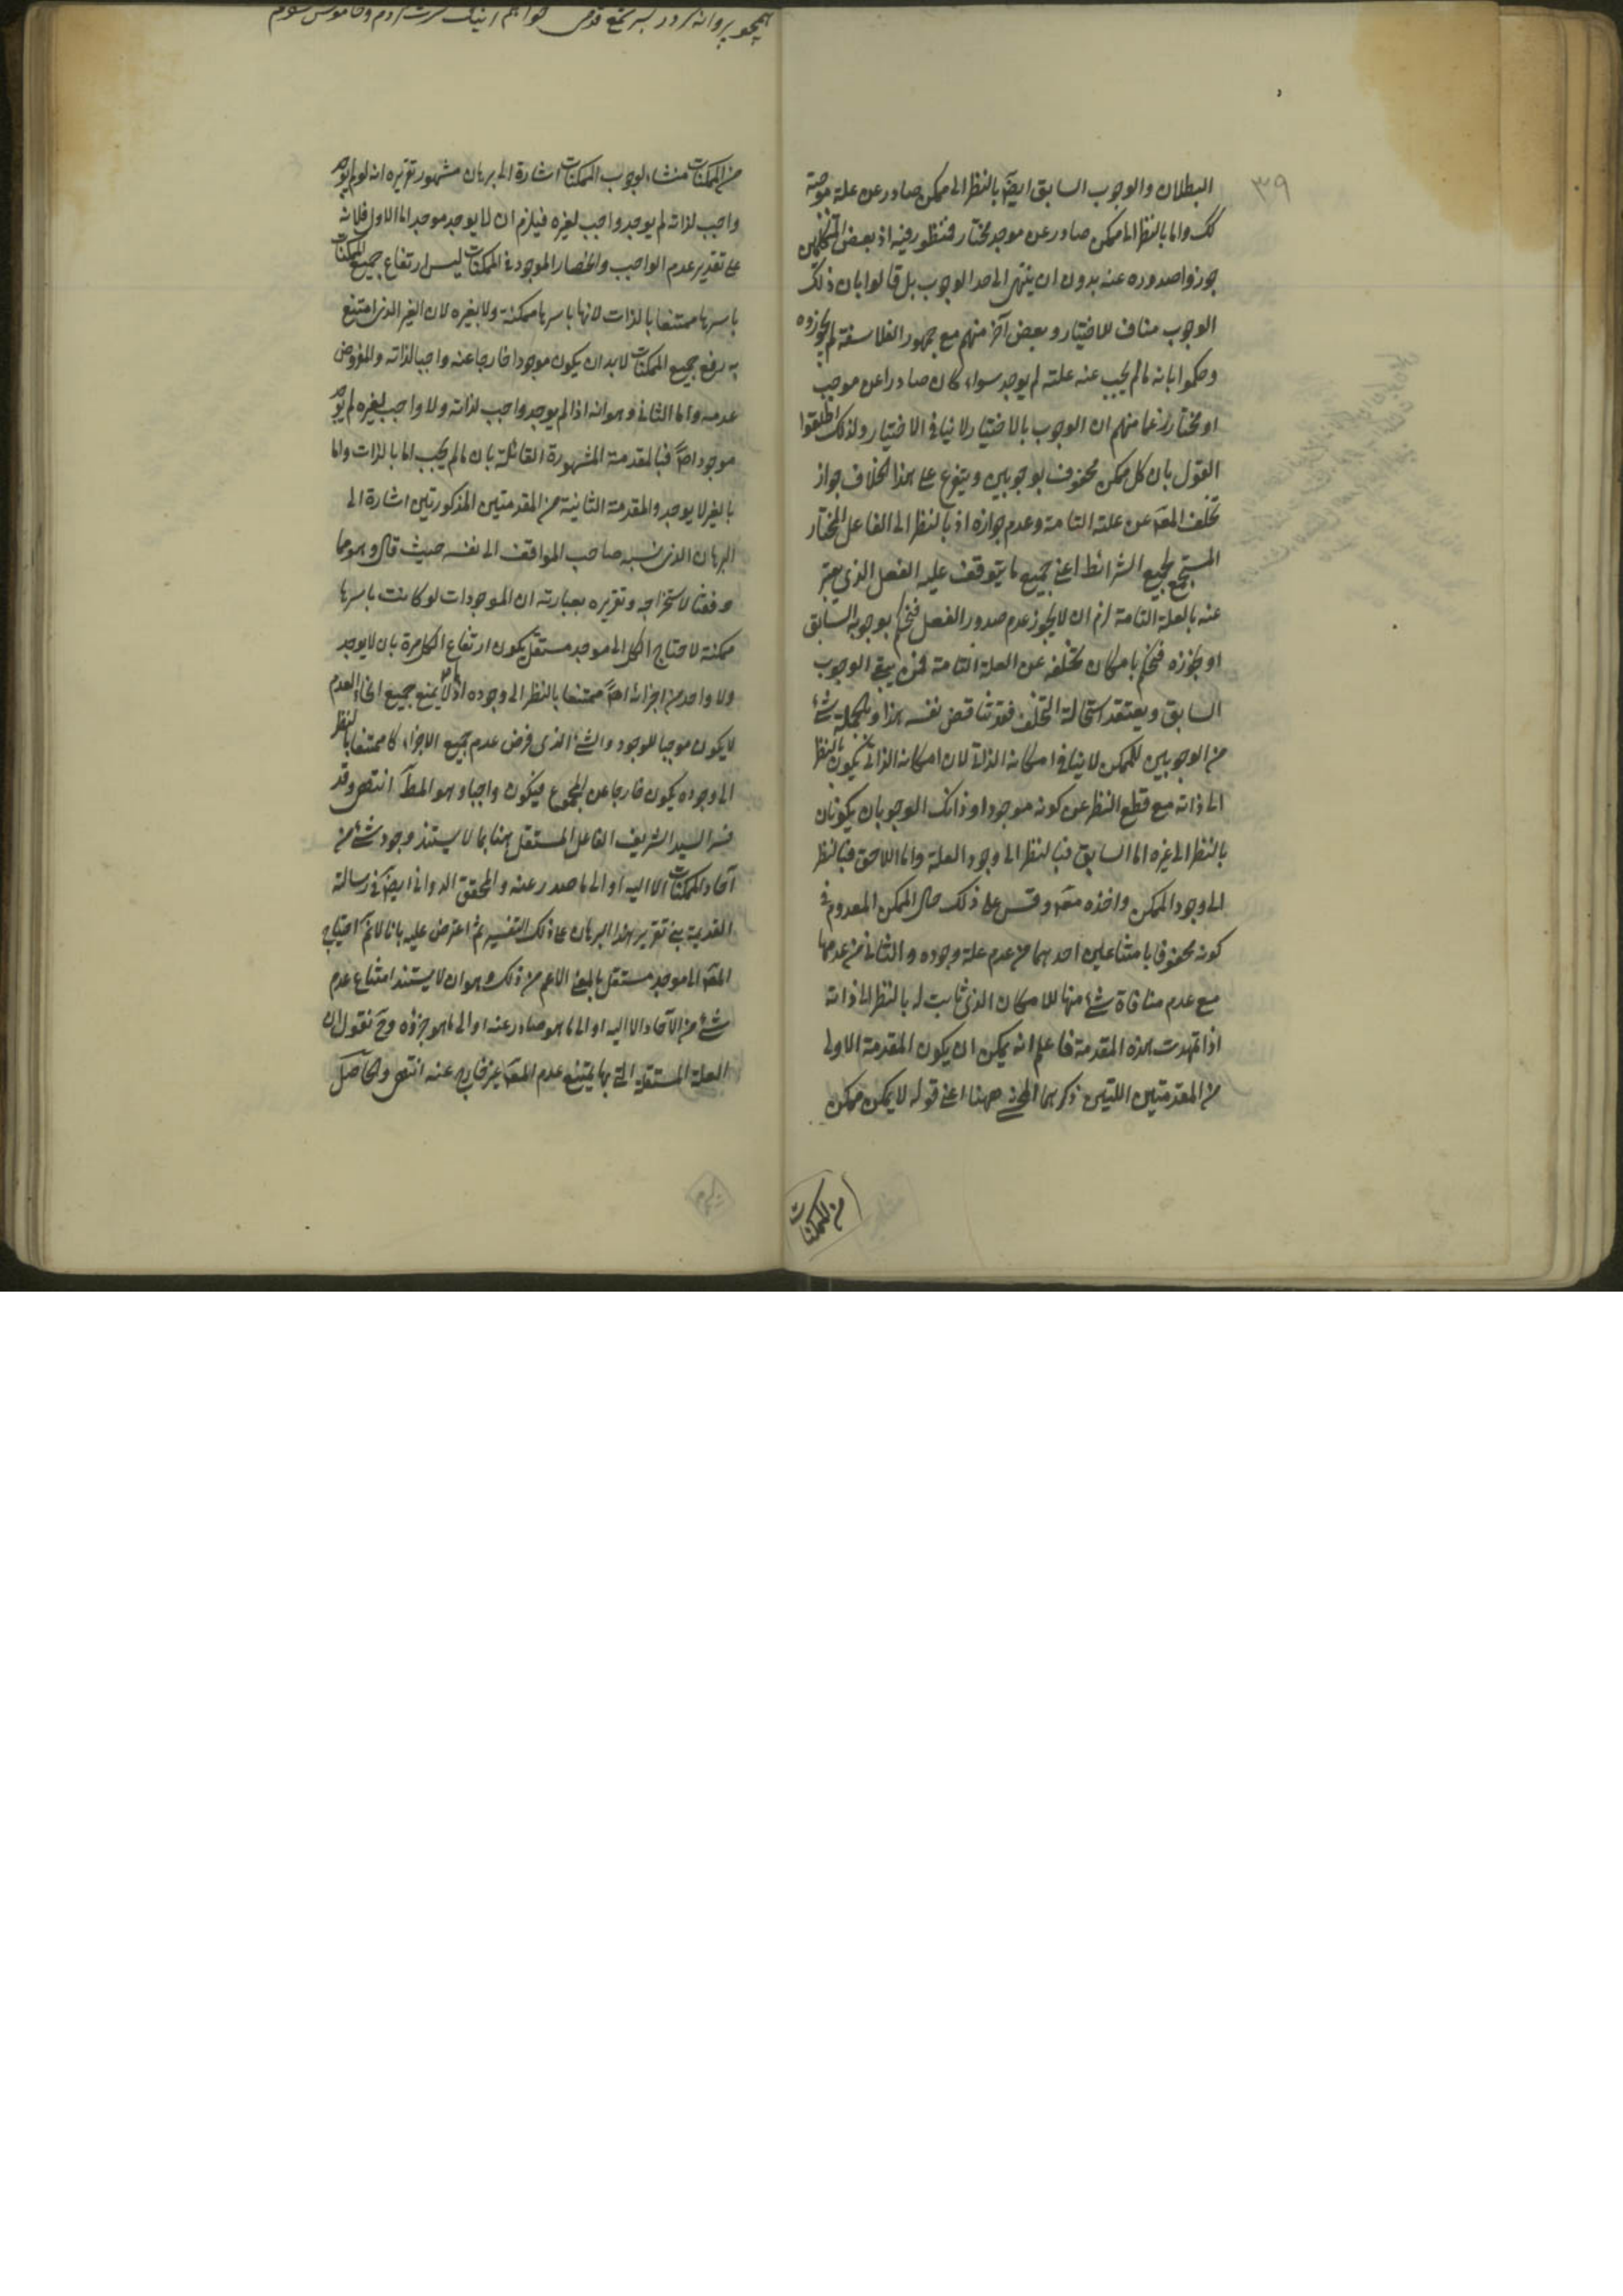 ٣٩
البطلان والوجوب السابق ايضا بالنظر الى ممكن صادر عن علة موجبة
كك واما بالنظر الى ممكن صادر عن موجد مختار فمنظور فيه اذ بعض المتكلمين
جوزوا صدوره عنه بدون ان ينتهى الى حد الوجوب بل قالوا بان ذلك
الوجوب مناف للاختيار وبعض آخر منهم مع جمهور الفلاسفة لم يجوزوه
وحكموا بانه ما لم يجب عنه علته لم يوجد سواء كان صادرا عن موجب
او مختار زعما منهم ان الوجوب بالاختيار لا ينافى الاختيار ولذلك اطلقوا
القول بان كل ممكن محفوف بوجوبين ويتفرع على هذا الخلاف جواز
تخلف المعلول عن علته التامة وعدم جوازه اذ بالنظر الى الفاعل المختار
المستجمع لجميع الشرائط اعنى جميع ما يتوقف عليه الفعل الذي يعبر
عنه بالعلة التامة لزم ان لا يجوز عدم صدور الفعل فنحكم بوجوبه السابق
او نجوزه فنحكم بامكان تخلفه عن العلة التامة فمن ينفى الوجوب
السابق ويعتقد استحالة التخلف فقد تناقض نفسه هذا وبالجملة شئ
من الوجوبين للممكن لا ينافى امكانه الذاتى لان امكانه الذاتى يكون بالنظر
الى ذاته مع قطع النظر عن كونه موجودا وذانك الوجوبان يكونان
بالنظر الى غيره اما السابق فبالنظر الى وجود العلة واما اللاحق فبالنظر
الى وجود الممكن واخذه معه وقس على ذلك حال الممكن المعدوم فى
كونه محفوفا بامتناعين احدهما من عدم علة وجوده والثانى من عدمها
مع عدم منافاة شئ منها للامكان الذى ثابت له بالنظر الى ذاته
اذا تمهدت هذه المقدمة فاعلم انه يمكن ان يكون المقدمة الاولى
من المقدمتين اللتين ذكرهما المحشى ههنا اعنى قوله لا يمكن ممكن
من الممكنات
من الممكنات منشاء لوجوب الممكنات اشارة الى برهان مشهور تقريره انه لو لم يوجد
واجب لذاته لم يوجد واجب لغيره فيلزم ان لا يوجد موجد اما الاول فلانه
على تقدير عدم الواجب وانحصار الموجود فى الممكنات ليس ارتفاع جميع الممكنات
باسرها ممتنعا بالذات لانها باسرها ممكنة ولا بغيره لان الغير الذى امتنع
به رفع جميع الممكنات لا بد ان يكون موجودا خارجا عنه واجبا لذاته والمفروض
عدمه واما الثانى وهو انه اذا لم يوجد واجب لذاته ولا واجب لغيره لم يوجد
موجود اصلا فبالمقدمة المشهورة القائلة بان ما لم يجب اما بالذات واما
بالغير لا يوجد والمقدمة الثانية من المقدمتين المذكورتين اشارة الى
البرهان الذى نسبه صاحب المواقف الى نفسه حيث قال وهو مما
وفقنا لاستخراجه وتقريره بعبارته ان الموجودات لو كانت باسرها
ممكنة لاحتاج الكل الى موجد مستقل يكون ارتفاع الكل مرة بان لا يوجد
ولا واحد من اجزائه اصلا ممتنعا بالنظر الى وجوده اذ ما لا يمنع جميع انحاء العدم
لا يكون موجبا للوجود والشئ الذى فرض عدم جميع الاجزاء كان ممتنعا بالنظر
الى وجوده يكون خارجا عن المجموع فيكون واجبا وهو المط انتهى وقد
فسر السيد الشريف الفاعل المستقل هنا بما لا يستند وجود شئ من
آحاد الممكنات الا اليه او الى ما صدر عنه والمحقق الدوانى ايضا فى رسالة
القديمة بنى تقرير هذا البرهان على ذلك التفسير ثم اعترض عليه بانا لانم احتياج
المعلول الى موجد مستقل بالمعنى الاعم من ذلك وهو ان لا يستند امتناع عدم
شئ من الآحاد الا اليه او الى ما هو صادر عنه او الى ما هو جزؤه وح نقول ان
العلة المستقلة التى بها يمتنع عدم المعلول غير خارج عنه انتهى والحاصل